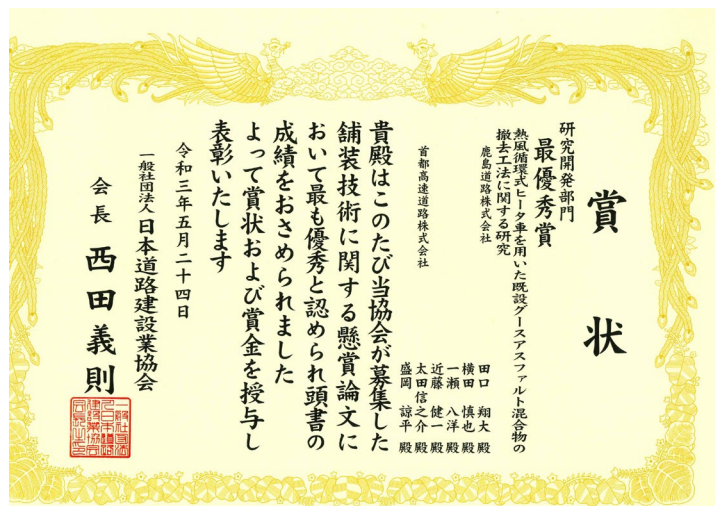 賞状
研究開発部門
最優秀賞
熱風循環式ヒータ車を用いた既設グースアスファルト混合物の
撤去工法に関する研究
鹿島道路株式会社
田口 翔大 殿
横田 慎也 殿
一瀬 八洋 殿
近藤 健一 殿
首都高速道路株式会社
太田信之介 殿
盛岡 諒平 殿
貴殿はこのたび当協会が募集した
舗装技術に関する懸賞論文に
おいて最も優秀と認められ頭書の
成績をおさめられました
よって賞状および賞金を授与し
表彰いたします
令和三年五月二十四日
一般社団法人日本道路建設業協会
会長 西田義則